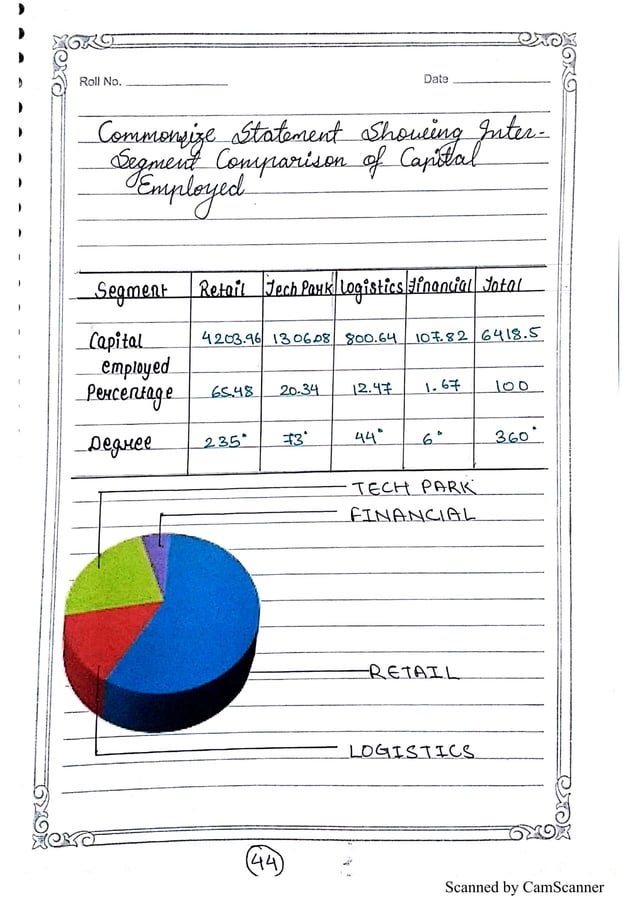 Roll No. Date
Commonsize Statement Showing Inter-
Segment Comparison of Capital
Employed
Segment Retail Tech Park Logistics Financial Total
Capital employed 4203.96 1306.08 800.64 107.82 6418.5
Percentage 65.48 20.34 12.47 1.67 100
Degree 235° 73° 44° 6° 360°
TECH PARK
FINANCIAL
RETAIL
LOGISTICS
44
Scanned by CamScanner